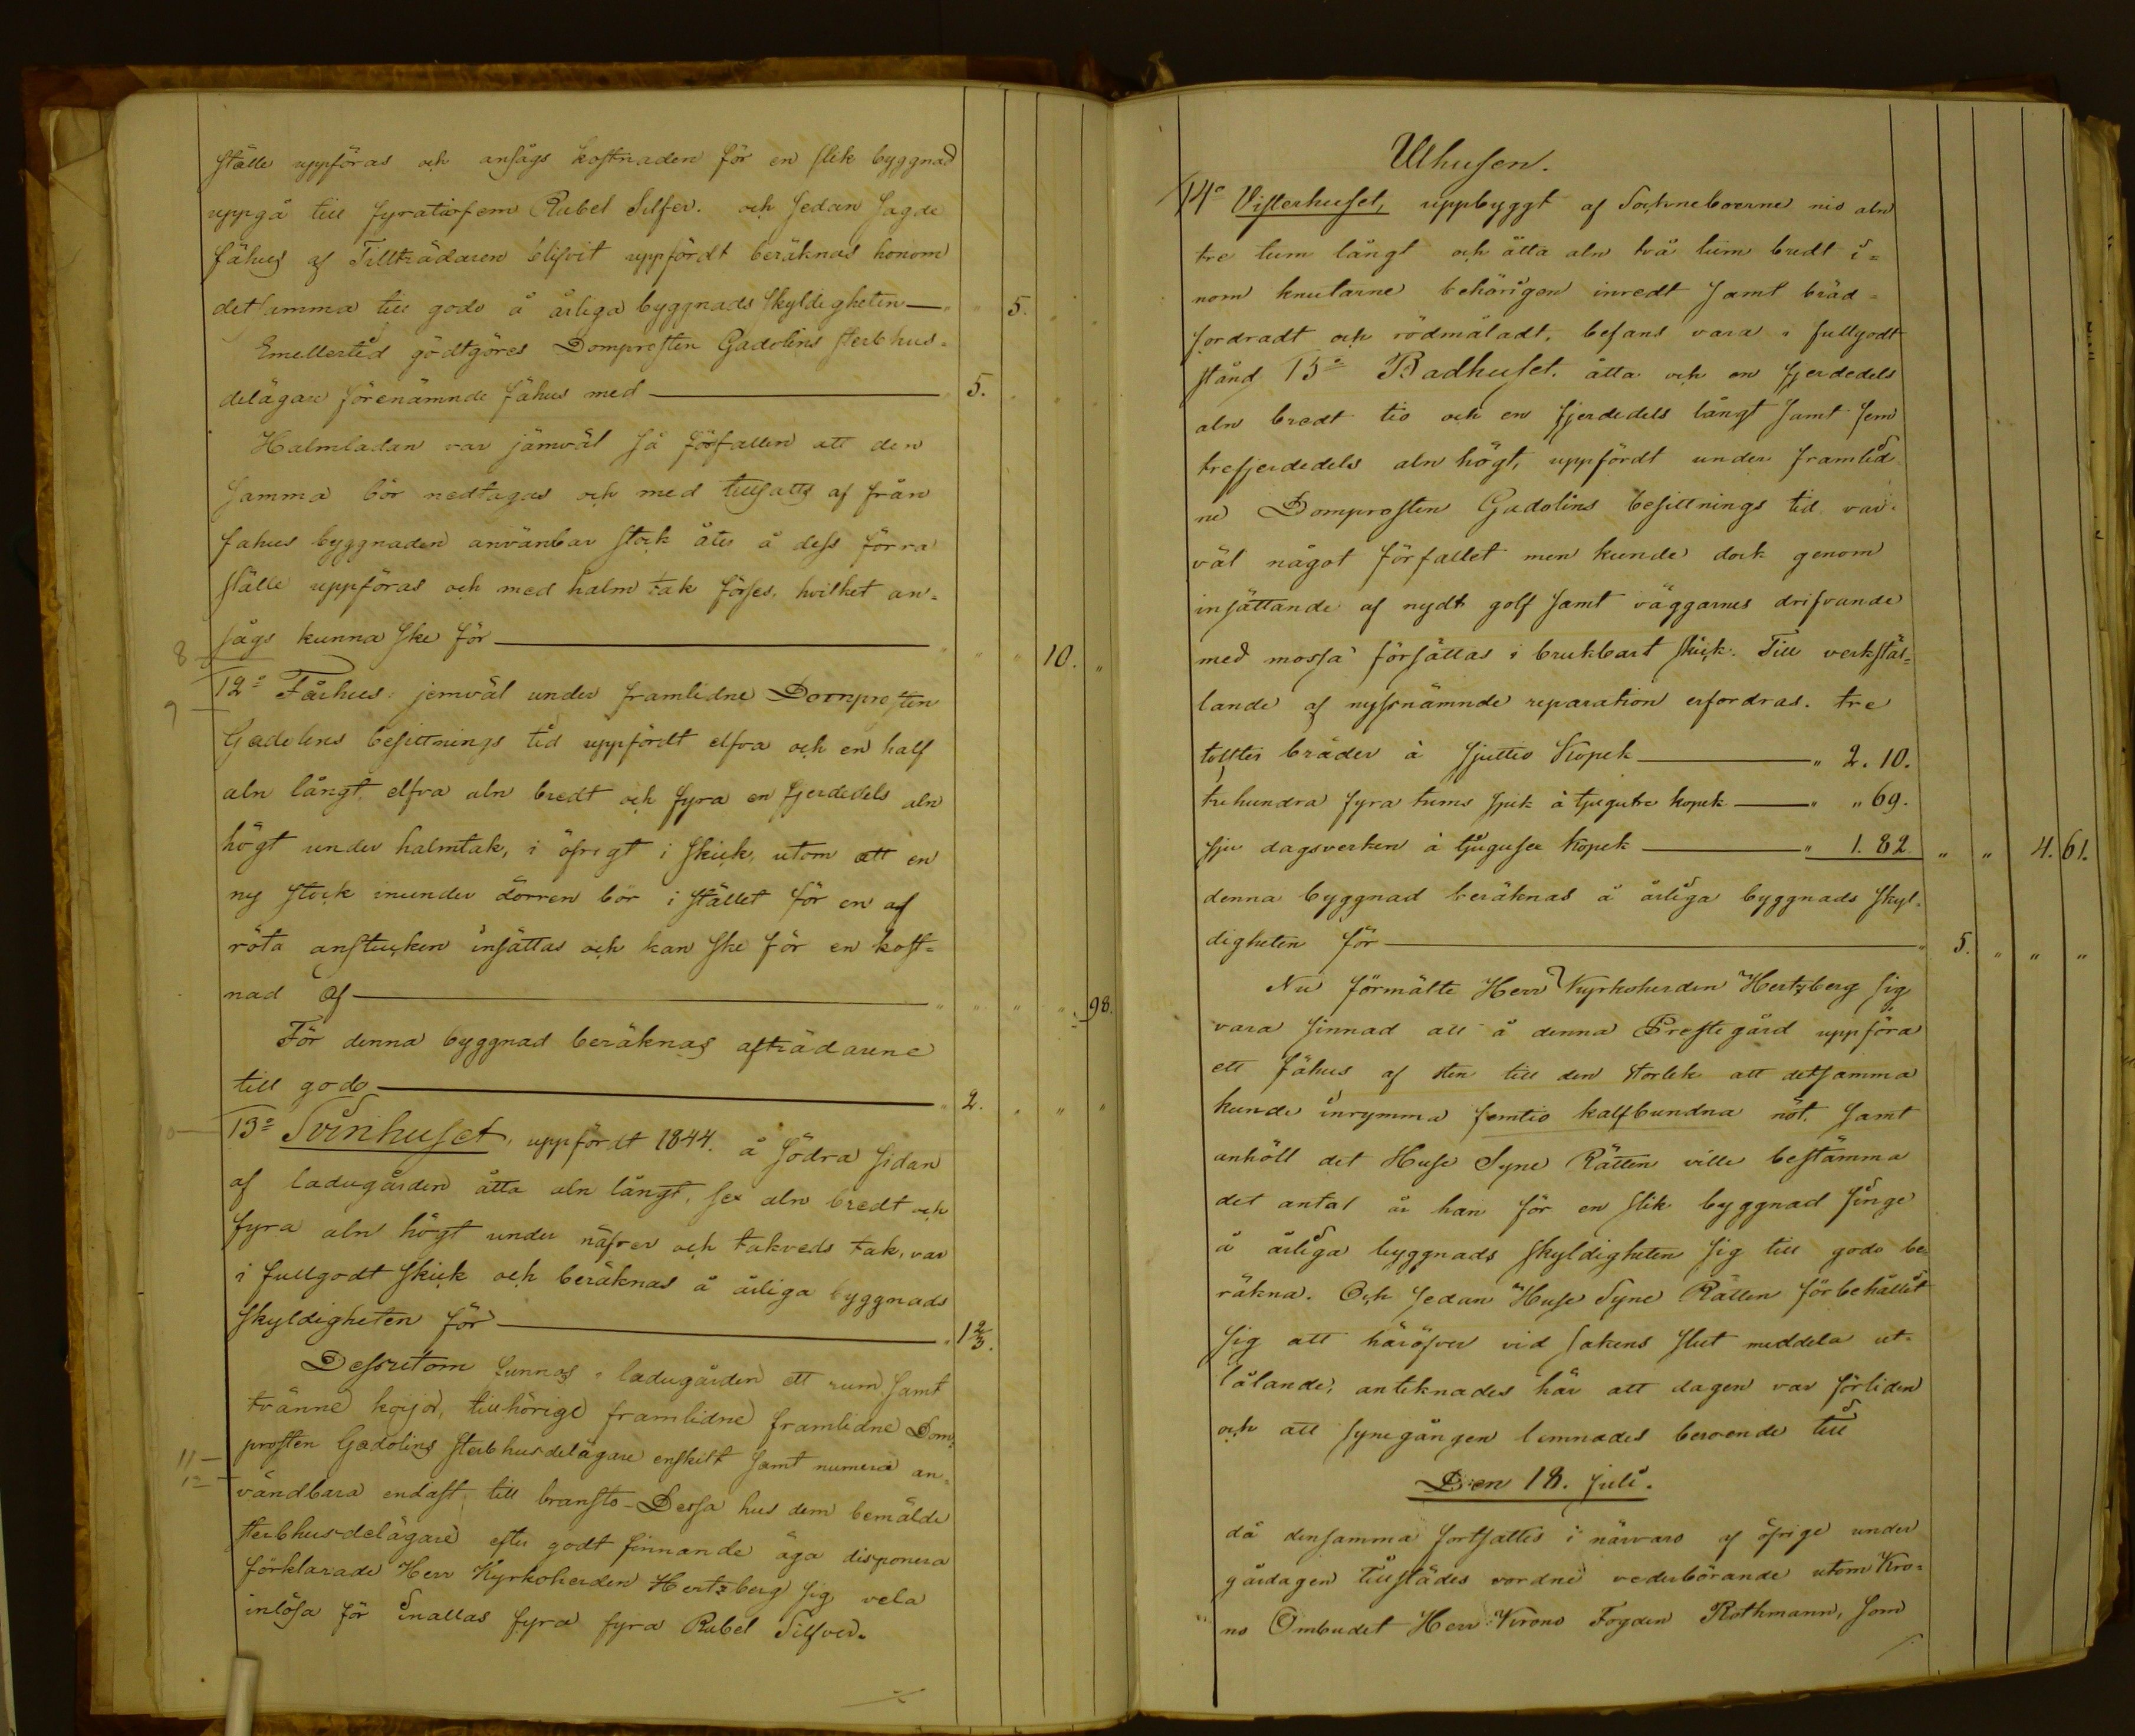 ställe uppföras och ansågs kostnaden för en slik byggnad
uppgå till fyratiofem Rubel Silfer. och sedan sagde
fähus af Tillträdaren blifvit uppfördt beräknas honom
detsamma till godo å årliga byggnads skyldigheten — " " 5.
Emellertid gödtgöres Domprosten Gadolins sterbhus=
delägare förenämnde fähus med — 5.
Halmladan var jämväl så förfallen att den
samma bör nedtagas och med tillsatts af från
fahus byggnaden använbar stock åter å dess förra
ställe uppföras och med halm tak förses, hvilket an=
sågs kunna ske för — " " " 10. "
8
9
12º Fårhus jemväl under framlidne Domprosten
Gadolins besittnings tid uppfördt elfva och en half
aln långt, elfva aln bredt och fyra en fjerdedels aln
högt under halmtak, i öfrigt i skick, utom att en
ny stock inunder dörren bör i stället för en af
röta anstucken insättas och kan ske för en kost=
nad af — " " " " 98.
För denna byggnad beräknas afträdarene
till godo — " 2. " " "
10
13º Svinhuset, uppfördt 1844. å södra sidan
af ladugården åtta aln långt, sex aln bredt och
fyra aln högt under näfver och takveds tak, var
i fullgodt skick och beräknas å årliga byggnads
skyldigheten för — " 1 2/3.
Dessutom funnos i ladugården ett rum samt
tvänne kojor, tillhörige framlidne framlidne Dom=
prosten Gadolins sterbhusdelägare enskilt samt numera an=
11
12
vändbara endast till bransto - Dessa hus dem bemälde
sterbhusdelägare efter godt finnande äga disponera
förklarade Herr Kyrkoherden Hertzberg sig vela
inlösa för inallas fyra fyra Rubel Silfver.
Uthusen.
14º Visterhuset, uppbyggt af Sockneboerne nio aln
tre tum långt och åtta aln två tum bredt i=
nom knutarne behörigen inredt samt bräd=
fordradt och rödmåladt, befans vara i fullgodt
stånd 15º Badhuset. åtta och en fjerdedels
aln bredt tio och en fjerdedels långt samt fem
trefjerdedels aln högt, uppfördt under framlid
ne Domprosten Gadolins besittnings tid var
väl något förfallet men kunde dock genom
insättande af nydt golf samt väggarnes drifvande
med mossa försättas i brukbart skick. Till verkstäl=
lande af nyssnämnde reparation erfordras. tre
tollter bräder à sjuttio Kopek — " 2. 10.
trehundra fyra tums spik à tjugutre kopek — " " 69.
sju dagsverken à tjugusex Kopek — " 1. 82. " " 4. 61.
denna byggnad beräknas å årliga byggnads skyl=
digheten för — " 5. " " "
Nu förmälte Herr Kyrkoherden Hertzberg sig
vara sinnad att å denna Prestegård uppföra
ett fähus af sten till den storlek att detsamma
kunde inrymma femtio kalfbundna nöt. samt
anhöll det Huse Syne Rätten ville bestämma
det antal år han för en slik byggnad finge
å årliga byggnads skyldigheten sig till godo be=
räkna. Och sedan Huse Syne Rätten förbehållit
sig att häröfver vid sakens slut meddela ut=
låtande, anteknades här att dagen var förliden
och att synegången lemnades beroende till
Den 18. juli.
då densamma fortsattes i närvaro af öfrige under
gårdagen tillstädes vordne vederbörande utom Kro=
no Ombudet Herr Krono Fogden Rothmann, som